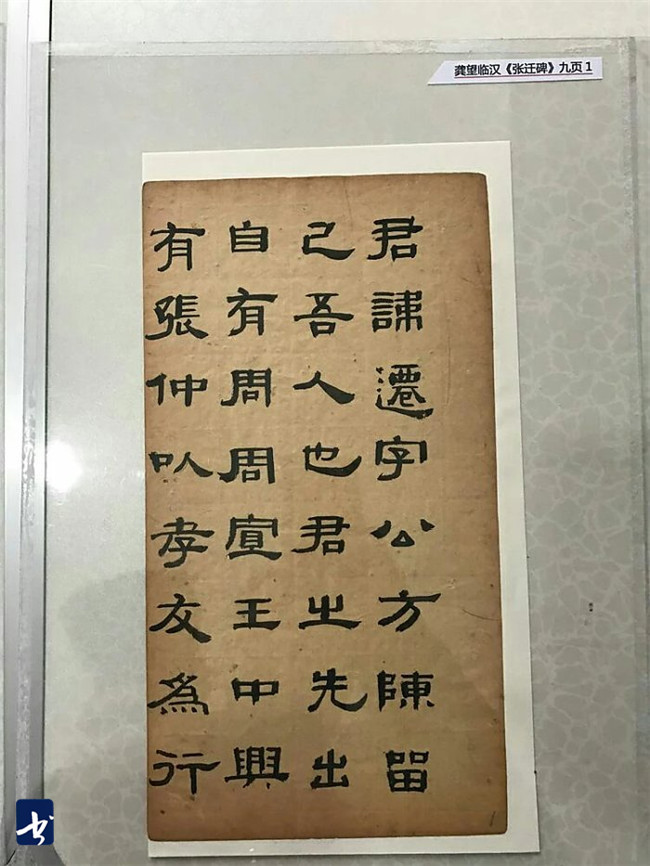 龚望临汉《张迁碑》九页1
君諱遷字公方陳留
己吾人也君之先出
自有周周宣王中興
有張仲以孝友為行